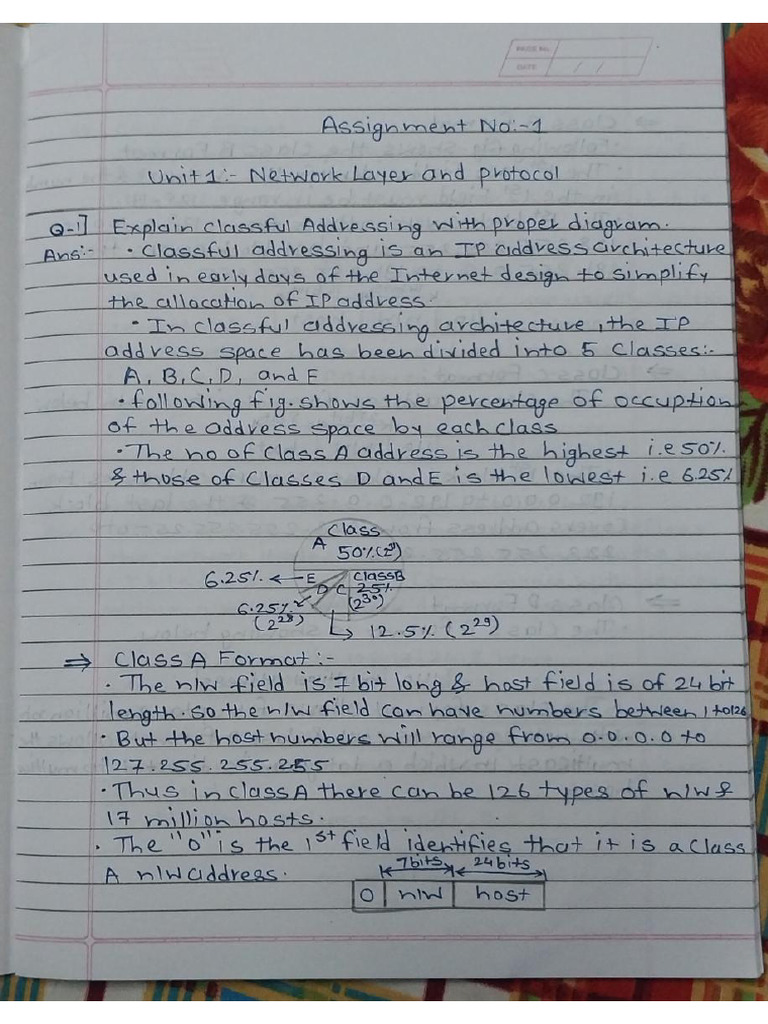 PAGE NO.
DATE / /
Assignment No:-1
Unit 1:- Network Layer and protocol
Q-1] Explain classful Addressing with proper diagram.
Ans:- • Classful addressing is an IP address architecture
used in early days of the Internet design to simplify
the allocation of IP address.
• In classful addressing architecture, the IP
address space has been divided into 5 Classes:-
A, B, C, D, and E
• following fig. shows the percentage of occuption
of the address space by each class
• The no of Class A address is the highest i.e 50%
& those of Classes D and E is the lowest i.e 6.25%
Class
A 50% (2³¹)
6.25% ← E Class B
D C 25%
6.25% (2³⁰)
(2²⁸)
12.5% (2²⁹)
⇒ Class A Format:-
• The n/w field is 7 bit long & host field is of 24 bit
length. so the n/w field can have numbers between 1 to 126
• But the host numbers will range from 0.0.0.0 to
127.255.255.255
• Thus in class A there can be 126 types of n/w &
17 million hosts.
• The "0" is the 1st field identifies that it is a class
A n/w address.
7bits 24bits
0 n/w host